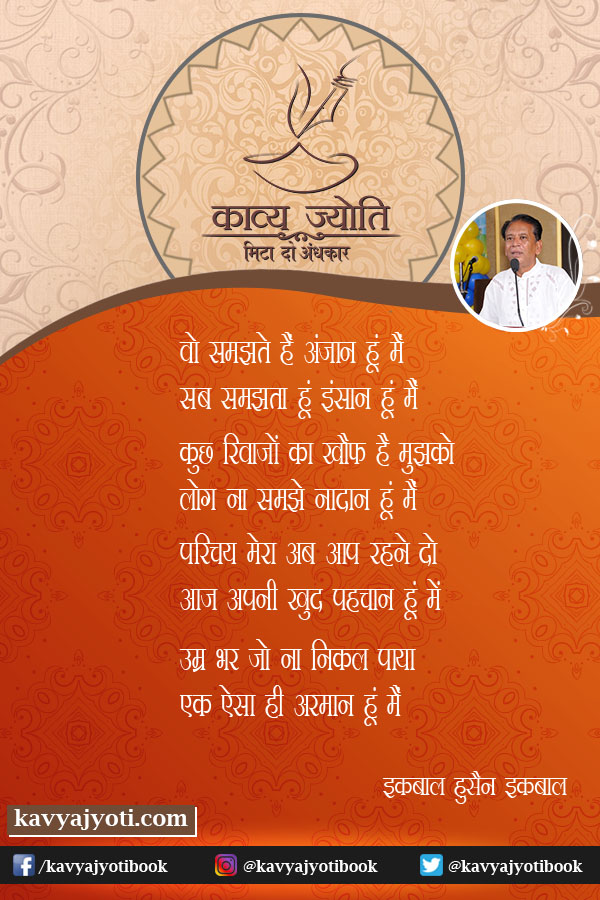 काव्य ज्योति
मिटा दो अंधकार
वो समझते हैं अंजान हूं मैं
सब समझता हूं इंसान हूं मैं
कुछ रिवाजों का खौफ है मुझको
लोग ना समझे नादान हूं मैं
परिचय मेरा अब आप रहने दो
आज अपनी खुद पहचान हूं में
उम्र भर जो ना निकल पाया
एक ऐसा ही अरमान हूं मैं
इकबाल हुसैन इकबाल
kavyajyoti.com
/kavyajyotibook @kavyajyotibook @kavyajyotibook